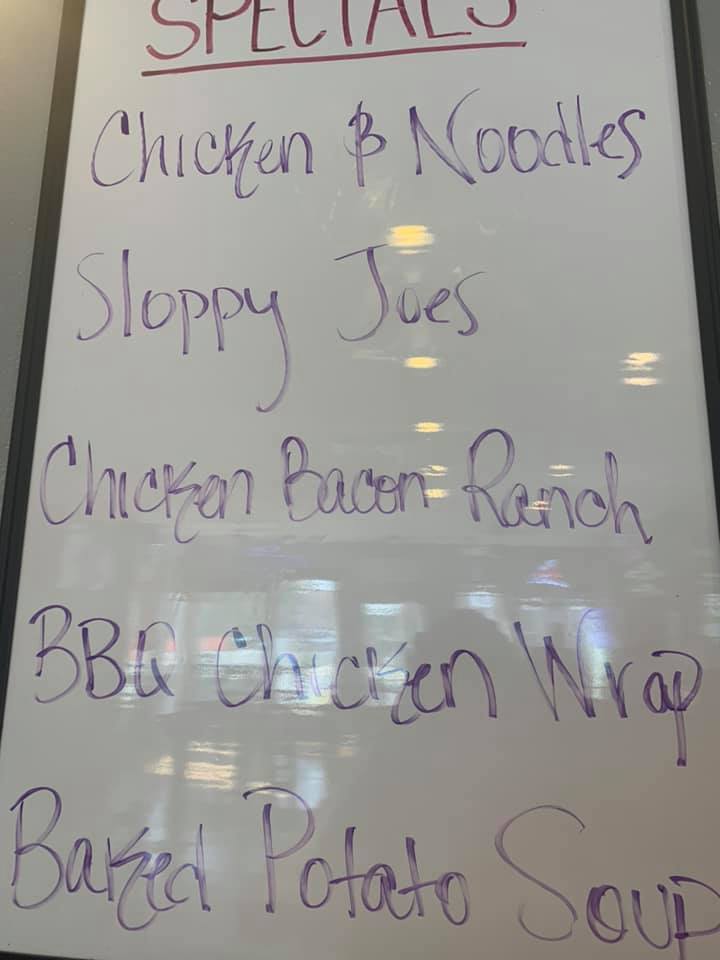 SPECIALS
Chicken & Noodles
Sloppy Joes
Chicken Bacon Ranch
BBQ Chicken Wrap
Baked Potato Soup